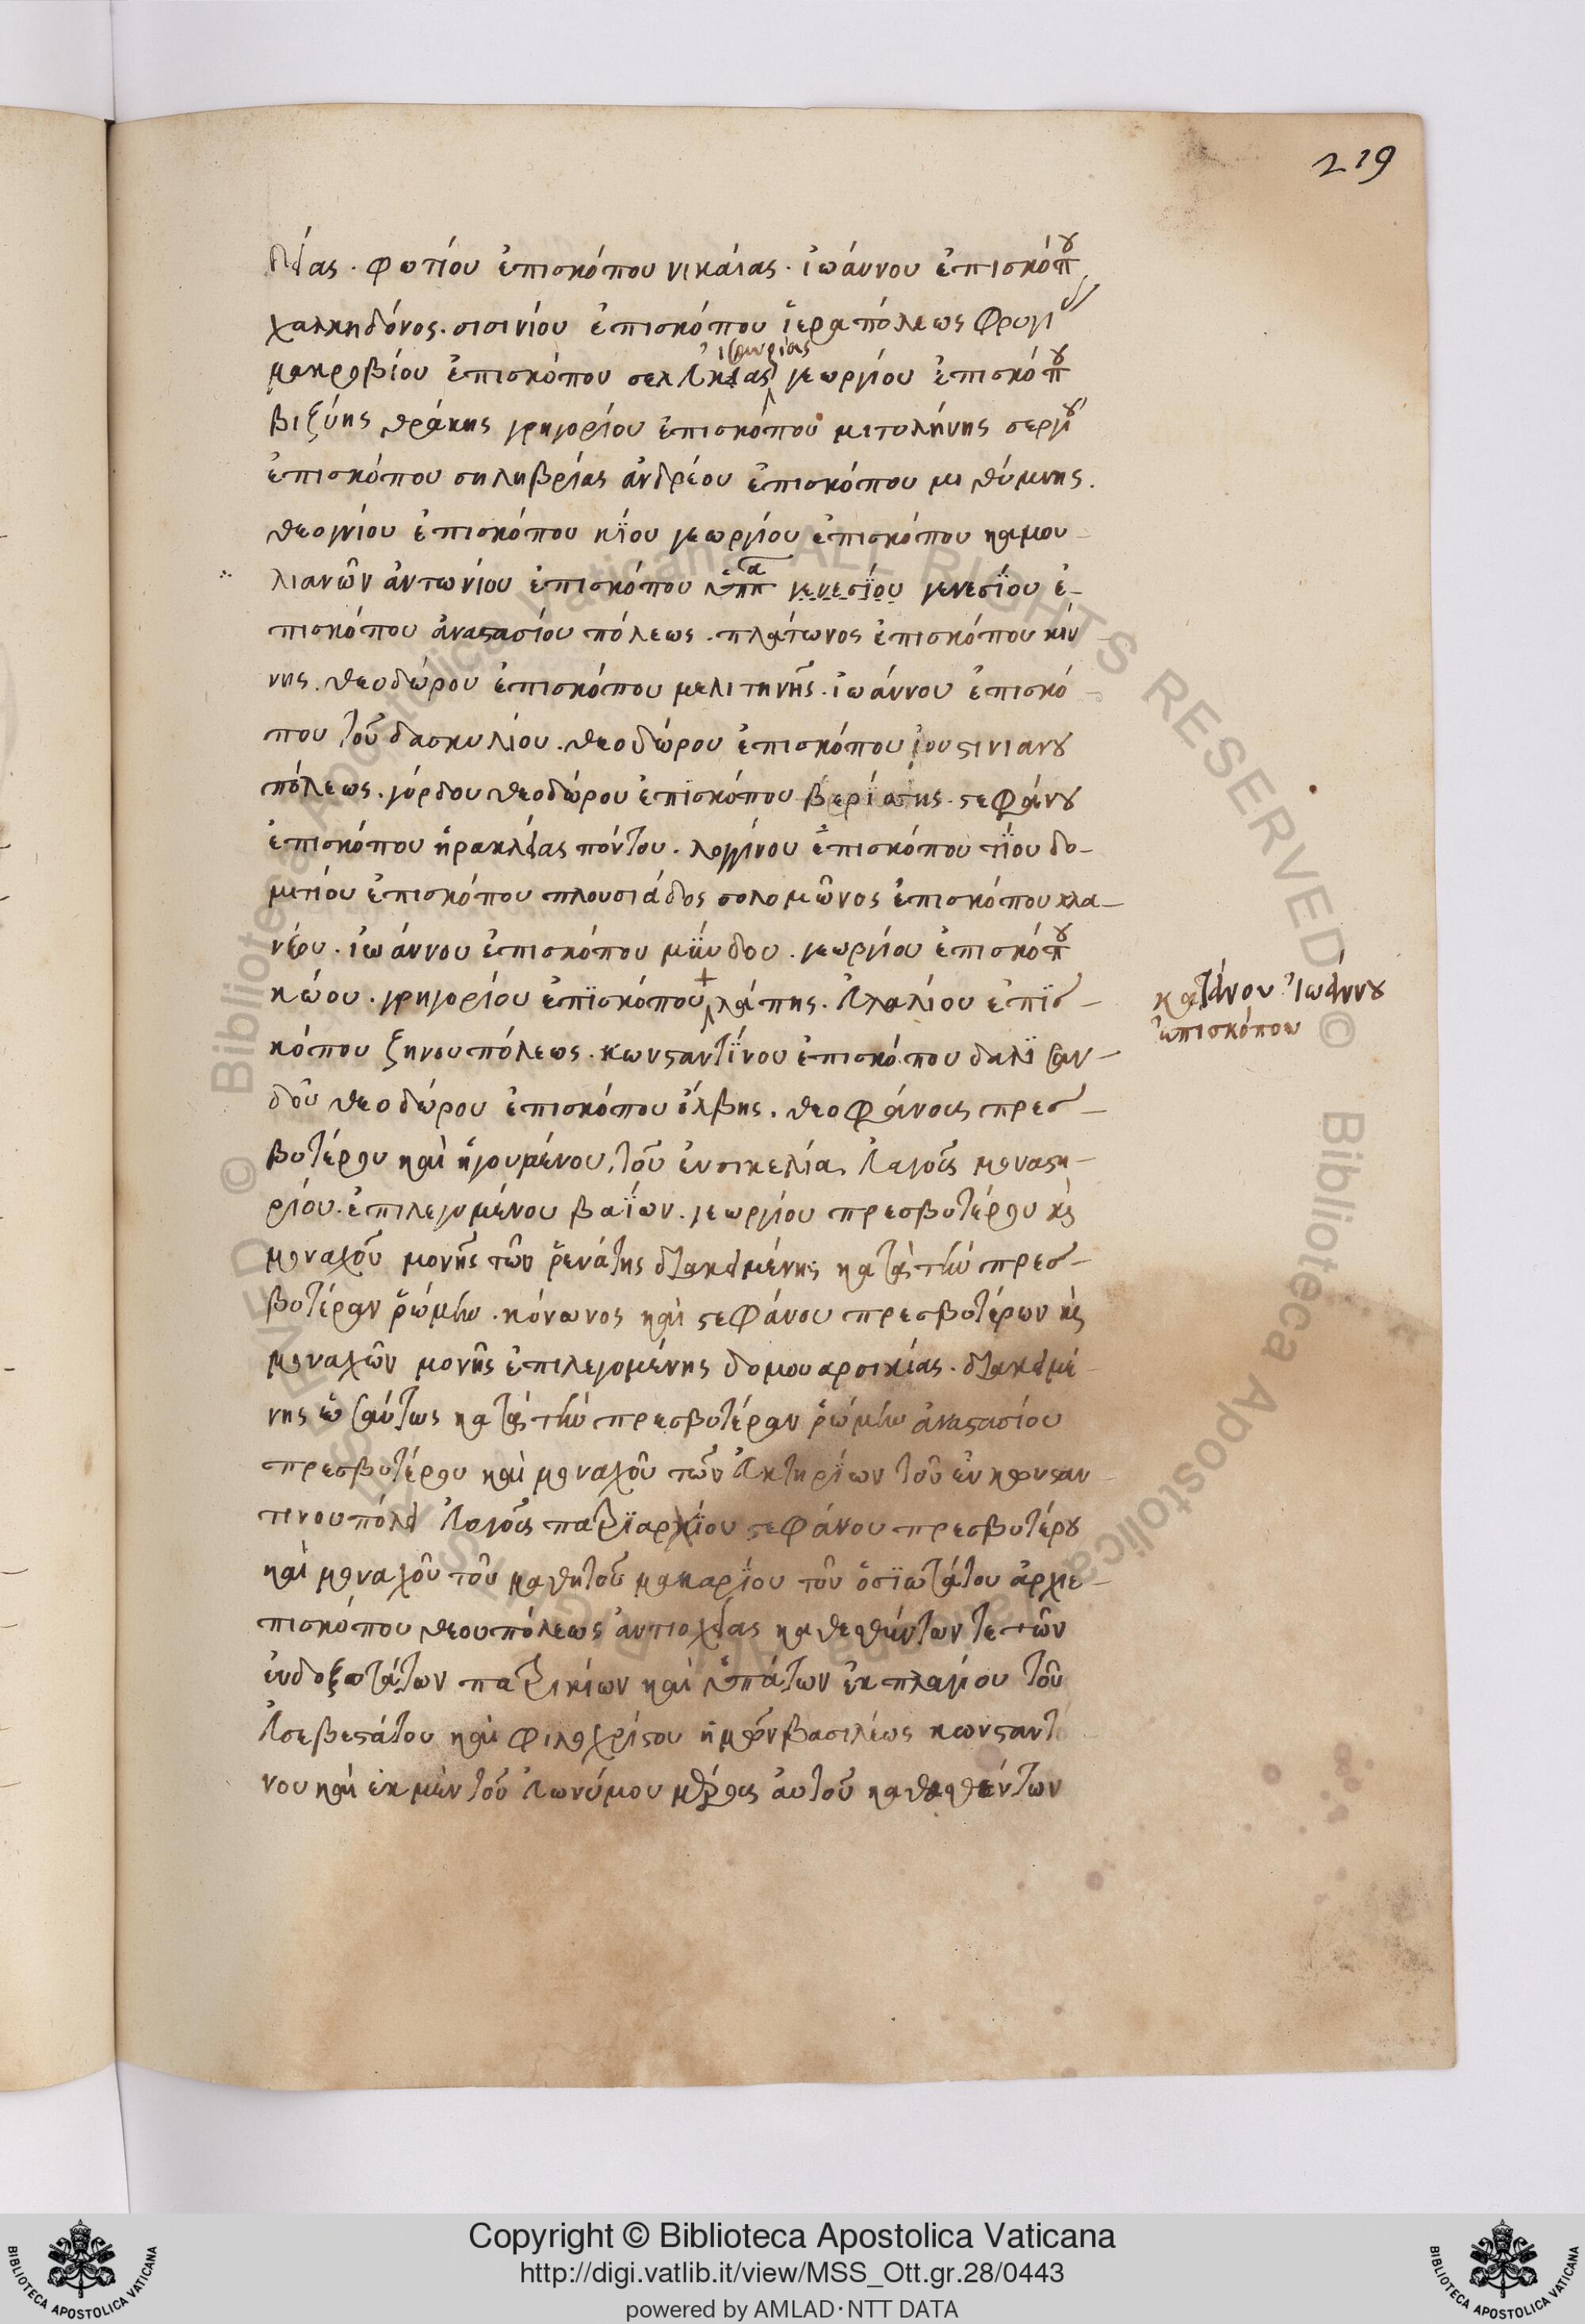 219
δείας · φωτίου ἐπισκόπου νικαίας · ἰωάννου ἐπισκόπου
χαλκηδόνος · σισινίου ἐπισκόπου ἱεραπόλεως φρυγί
μακροβίου ἐπισκόπου σελευκείας ἰσαυρίας γεωργίου ἐπισκόπου
βιζύης θράκης γρηγορίου ἐπισκόπου μιτυλήνης σεργίου
ἐπισκόπου σηληβρίας ἀνδρέου ἐπισκόπου μιθύμνης .
θεογνίου ἐπισκόπου κΐου γεωργίου ἐπισκόπου καμου-
λιανῶν ἀντωνίου ἐπισκόπου γενεσΐου γενεσΐου ἐ-
πισκόπου ἀναστασίου πόλεως . πλάτωνος ἐπισκόπου κίν-
νης . θεοδώρου ἐπισκόπου μελιτηνῆς . ἰωάννου ἐπισκό-
που τοῦ δασκυλίου . θεοδώρου ἐπισκόπου ἰουστινιανου
πόλεως . γόρδου θεοδώρου ἐπϊσκόπου στεφάνου
ἐπισκόπου ἡρακλείας πόντου . λογγίνου ἐπισκόπου τΐου δο-
μιτίου ἐπισκόπου πλουσιάδος σολομῶνος ἐπισκόπου κλα-
νέου . ἰωάννου ἐπισκόπου μΐνδου . γεωργίου ἐπισκόπου
κώου . γρηγορίου ἐπϊσκόπου λάπης . εὐλαλίου ἐπϊσ-
κατάνου ἰωάννου
ἐπισκόπου
κόπου ζηνουπόλεως . κωνσταντΐνου ἐπισκόπου δαλϊσαν-
δοῦ θεοδώρου ἐπισκόπου ὄλβης . θεοφάνους πρεσ-
βυτέρου καὶ ἡγουμένου , τοῦ ἐν σικελία εὐαγοῦς μοναστη-
ρίου . ἐπιλεγομένου βαΐων . γεωργίου πρεσβυτέρου καὶ
μοναχοῦ μονῆς τῶν ῥενάτης διακειμένης κατὰ τὴν πρεσ-
βυτέραν ῥώμην . κόνωνος καὶ στεφάνου πρεσβυτέρων καὶ
μοναχῶν μονῆς ἐπιλεγομένης δομουαρσικίας . διακειμέ-
νης ὡσαύτως κατὰ τὴν πρεσβυτέραν ῥώμην ἀναστασίου
πρεσβυτέρου καὶ μοναχοῦ τῶν εὐκτηρΐων τοῦ ἐν κωνσταν-
τινουπόλει εὐαγοῦς πατριαρχΐου στεφάνου πρεσβυτέρου
καὶ μοναχοῦ τοῦ μαθητοῦ μακαρΐου τοῦ ὁσϊωτάτου ἀρχιε-
πισκόπου θεουπόλεως ἀντιοχείας καθεσθέντων τε τῶν
ἐνδοξοτάτων πατρικίων καὶ ὑπάτων ἐκ πλαγίου τοῦ
εὐσεβεστάτου καὶ φιλοχρίστου ἡμῶν βασιλέως κωνσταντί-
νου καὶ ἐκ μὲν τοῦ εὐωνύμου μέρους αὐτοῦ καθεσθέντων
Copyright © Biblioteca Apostolica Vaticana
http://digi.vatlib.it/view/MSS_Ott.gr.28/0443
powered by AMLAD · NTT DATA